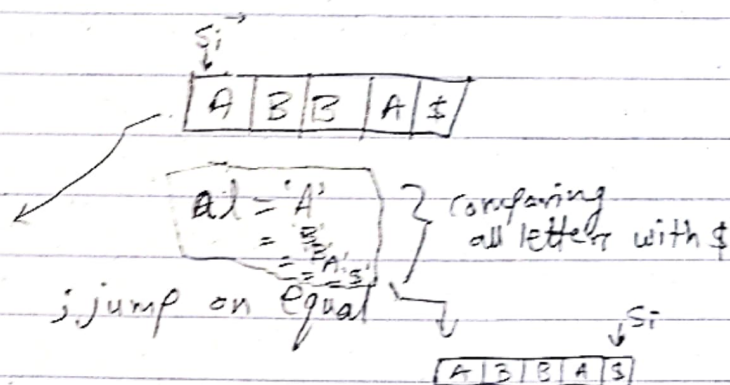 Si
A B B A $
al = 'A'
= 'B'
= 'B'
= 'A'
= '$'
comparing
all letters with $
; jump on equal
Si
A B B A $